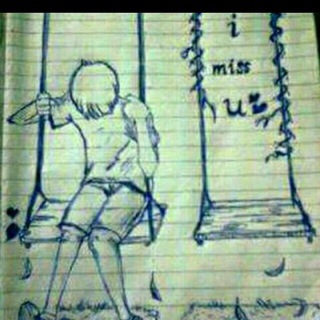 i
miss
u